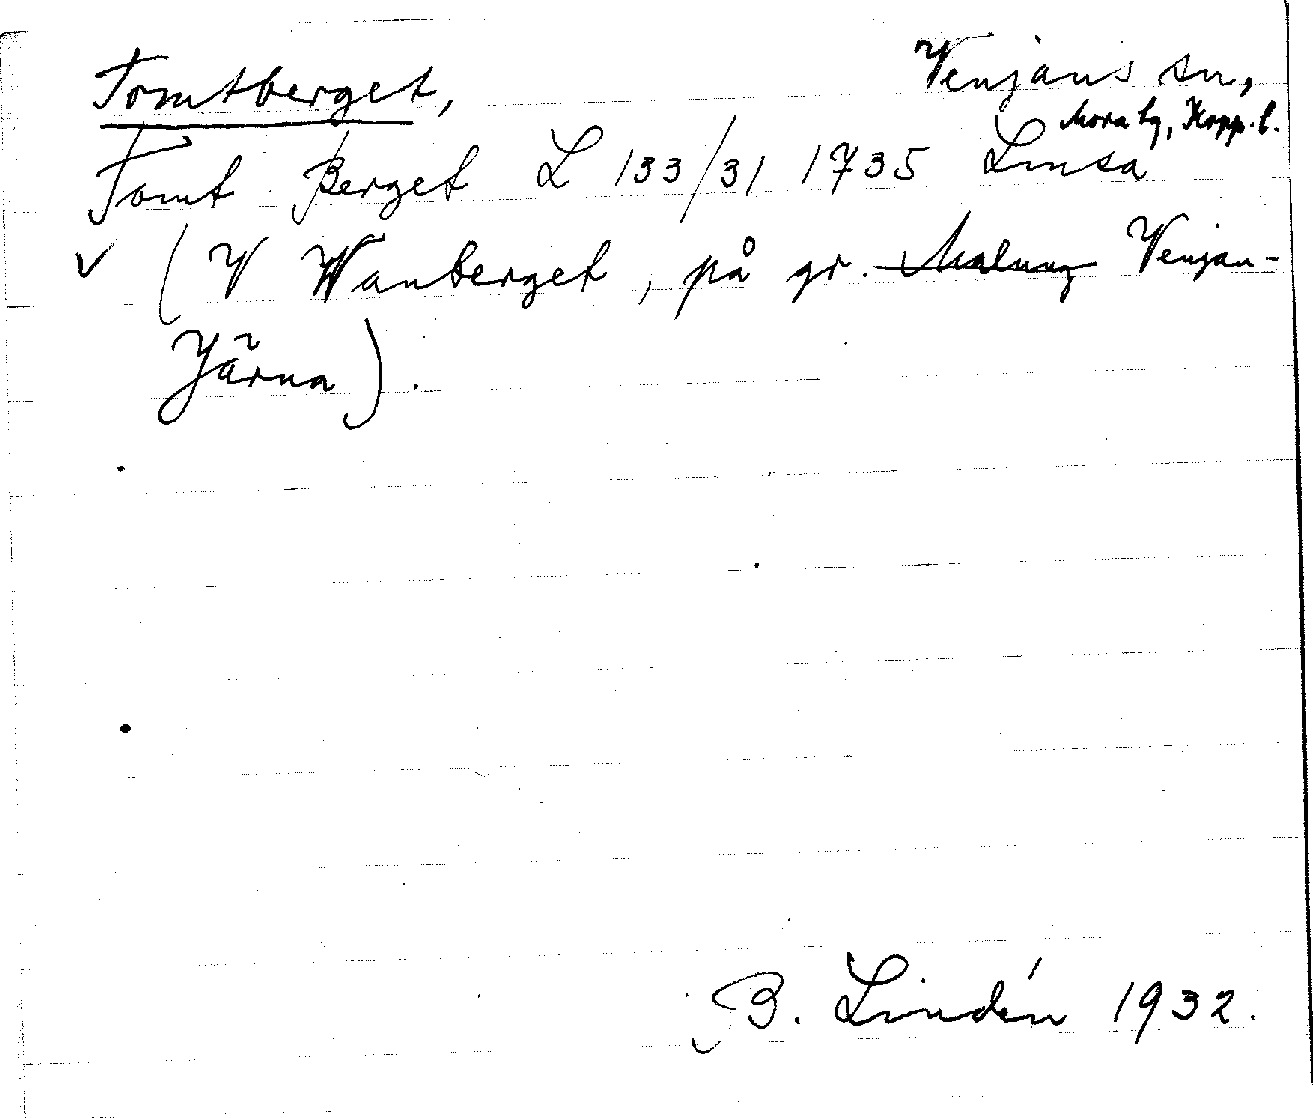 Tomtberget, Venjans sn,
Mora tg, Kopp. l.
Tomt Berget L 133/31 1735 Lmsa
✓ (V Wanberget, på gr. Malung Venjan-
Järna).
B. Lindén 1932.